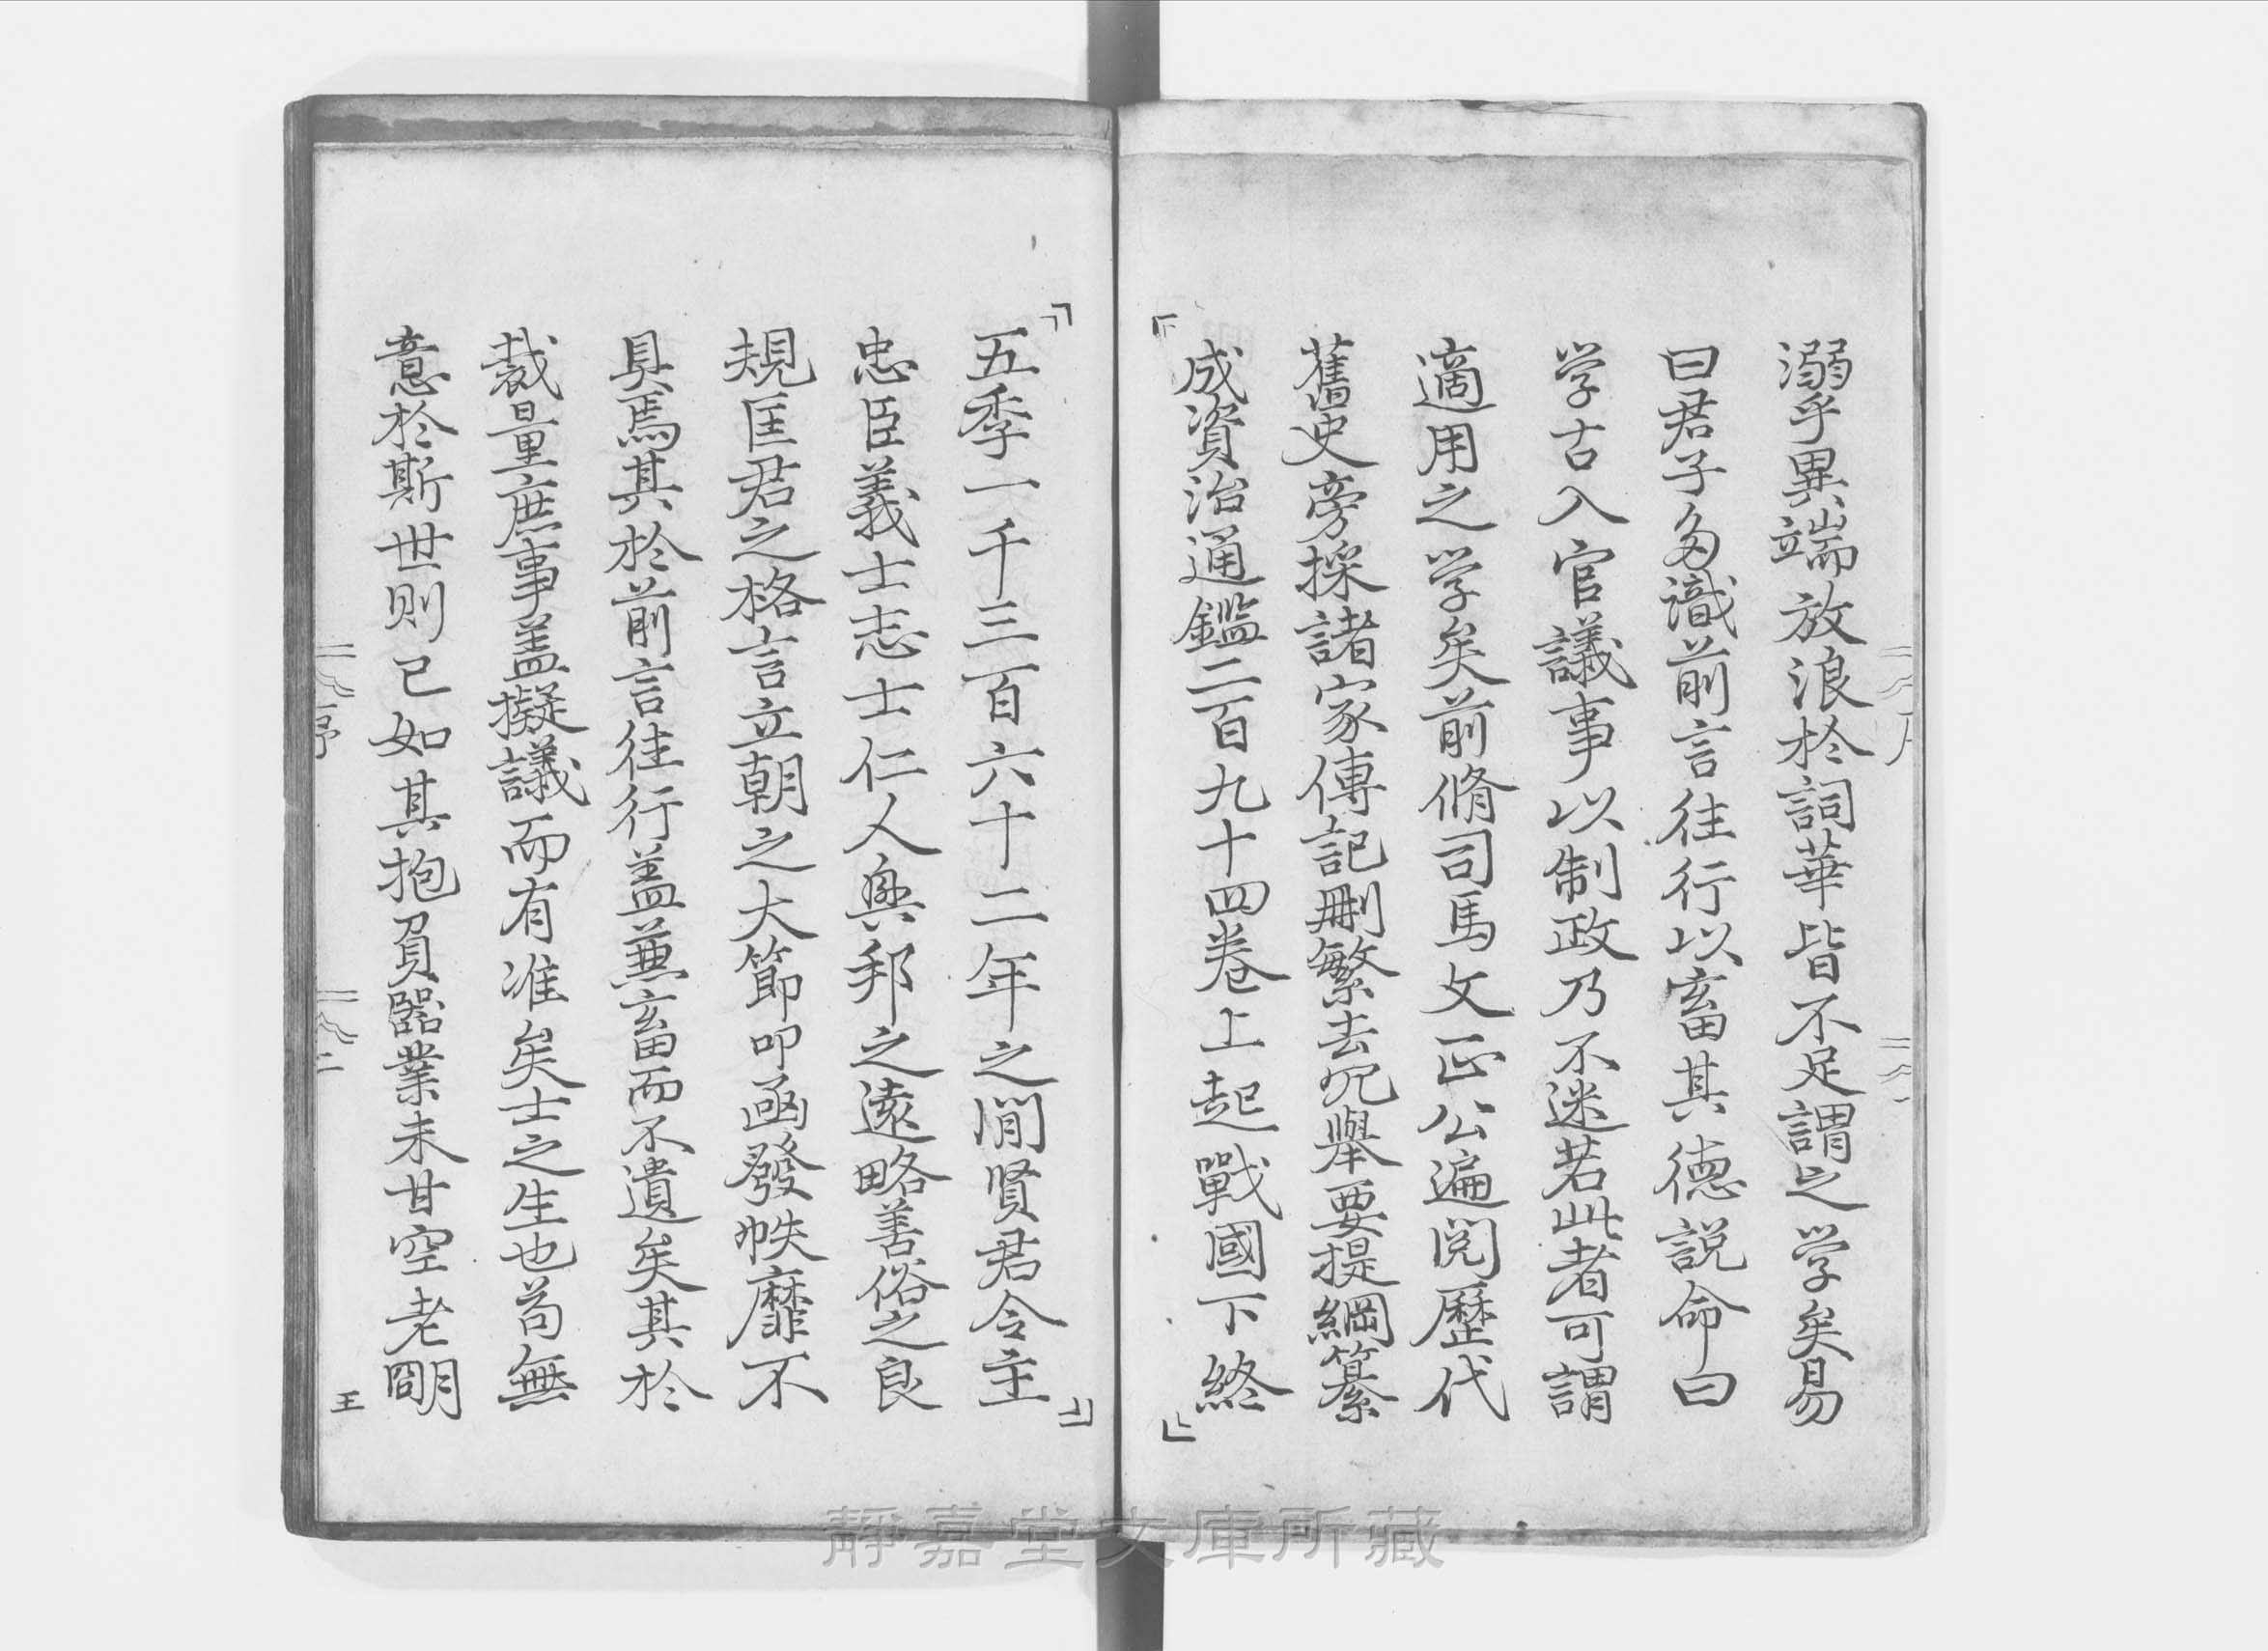 溺乎異端放浪於詞華皆不足謂之学矣易
曰君子多識前言往行以畜其徳説命曰
学古入官議事以制政乃不迷若此者可謂
適用之学矣前脩司馬文正公遍閲歴代
舊史旁採諸家傳記刪繁去冗舉要提綱纂
成資治通鑑二百九十四卷上起戰國下終
五季一千三百六十二年之間賢君令主
忠臣義士志士仁人興邦之遠略善俗之良
規匡君之格言立朝之大節叩函發帙靡不
具焉其於前言徃行盖兼畜而不遺矣其於
裁量庶事盖擬議而有准矣士之生也苟無
意於斯世則已如其抱負器業未甘空老明
序
二
王
靜嘉堂文庫所藏